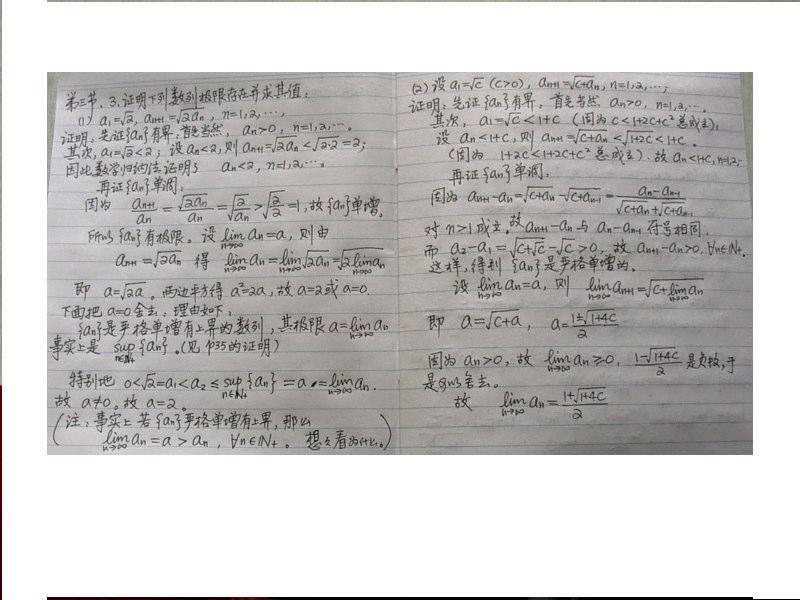 第三节、3.证明下列数列极限存在并求其值:
(1) a₁=√2, aₙ₊₁=√(2aₙ), n=1,2,⋯;
证明:先证{aₙ}有界,首先当然, aₙ>0, n=1,2,⋯。
其次, a₁=√2<2; 设aₙ<2, 则aₙ₊₁=√(2aₙ)<√(2·2)=2;
因此数学归纳法证明了 aₙ<2, n=1,2,⋯.
再证{aₙ}单调:
因为 aₙ₊₁/aₙ=√(2aₙ)/aₙ=√(2/aₙ)>√(2/2)=1, 故{aₙ}单增。
所以{aₙ}有极限。设 lim(n→∞) aₙ=a, 则由
aₙ₊₁=√(2aₙ) 得 lim(n→∞) aₙ=lim(n→∞) √(2aₙ)=√(2 lim(n→∞) aₙ)
即 a=√(2a)。两边平方得 a²=2a, 故a=2或a=0.
下面把a=0舍去,理由如下:
{aₙ}是严格单增有上界的数列,其极限a=lim(n→∞) aₙ
事实上是 sup(n∈N₊){aₙ}。(见P35的证明)
特别地 0<√2=a₁<a₂≤sup(n∈N₊){aₙ}=a=lim(n→∞) aₙ.
故 a≠0。故 a=2。
(注:事实上若{aₙ}严格单增有上界,那么
lim(n→∞) aₙ=a>aₙ, ∀n∈N₊。想想看为什么。)
(2) 设a₁=√c (c>0), aₙ₊₁=√(c+aₙ), n=1,2,⋯;
证明:先证{aₙ}有界。首先当然 aₙ>0, n=1,2,⋯
其次, a₁=√c<1+c (因为 c<1+2c+c² 总成立);
设 aₙ<1+c, 则aₙ₊₁=√(c+aₙ)<√(1+2c)<1+c.
(因为 1+2c<1+2c+c² 总成立). 故aₙ<1+c, n=1,2,⋯
再证{aₙ}单调:
因为 aₙ₊₁-aₙ=√(c+aₙ)-√(c+aₙ₋₁)=(aₙ-aₙ₋₁)/(√(c+aₙ)+√(c+aₙ₋₁))
对n>1成立。故 aₙ₊₁-aₙ与aₙ-aₙ₋₁符号相同.
而 a₂-a₁=√(c+√c)-√c>0, 故 aₙ₊₁-aₙ>0, ∀n∈N₊.
这样,得到{aₙ}是严格单增的。
设 lim(n→∞) aₙ=a, 则 lim(n→∞) aₙ₊₁=√(c+lim(n→∞) aₙ)
即 a=√(c+a), a=(1±√(1+4c))/2
因为aₙ>0, 故 lim(n→∞) aₙ≥0. (1-√(1+4c))/2 是负数,于
是舍去。
故 lim(n→∞) aₙ=(1+√(1+4c))/2